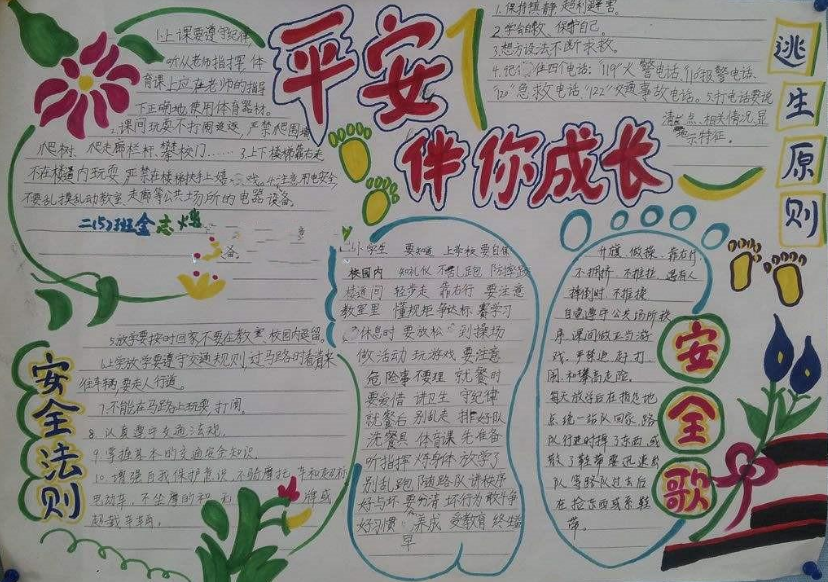 平安
伴你成长
1.上课要遵守纪律,
听从老师指挥,体
育课上应在老师的指导
下正确地使用体育器材。
2.课间玩耍不打闹追逐,严禁爬围墙
爬树、爬走廊栏杆、攀校门……3.上下楼梯靠右走
不在楼道内玩耍,严禁在楼梯扶手上 4.注意用电安全
不要乱摸乱动教室、走廊等公共场所的电器设备。
二(5)班金志
备。
5.放学要按时回家不要在教室、校园内逗留。
6.上学放学要遵守交通规则,过马路时看清来
往车辆要走人行道。
7.不能在马路上玩耍、打闹。
8.认真遵守交通法规。
9.掌握基本的交通安全知识。
10.增强自我保护意识,不骑摩托
不坐 和
超载车辆。
安全法则
1.保持镇静,趋利避害。
2.学会自救,保护自己。
3.想方设法不断求救。
4.记住四个电话:“119”火警电话“110”报警电话、
“120”急救电话“122”交通事故电话。5.打电话要说
清地点、相关情况,显
示特征。
逃生原则
小学生 要知道 上学校 要自保
校园内 知礼仪 不乱跑
楼道间 轻步走 靠右行 要注意
教室里 懂规矩 争达标 赛学习
休息时 要放松 到操场
做活动 玩游戏 要注意
危险事 不要理 就餐时
要爱惜 讲卫生 守纪律
就餐后 别乱走 排好队
洗餐具 体育课 先准备
听指挥 炼身体 放学了
别乱跑 路队 讲秩序
好与坏 要分清 坏行为 敢斗争
好习惯 养成 受教育 终生
早
升旗 做操 靠右行,
不拥挤 不推拉 遇有人
摔倒时 不推挨
自觉遵守公共场所秩
序 课间做正当游
戏,严禁追、打
闹和攀高走险。
每天放学后在指定地
点统一站队回家,路
队行进时掉了东西,或
散了鞋带要迅速出
队等路队过去后
在捡东西或系鞋
带。
安全歌